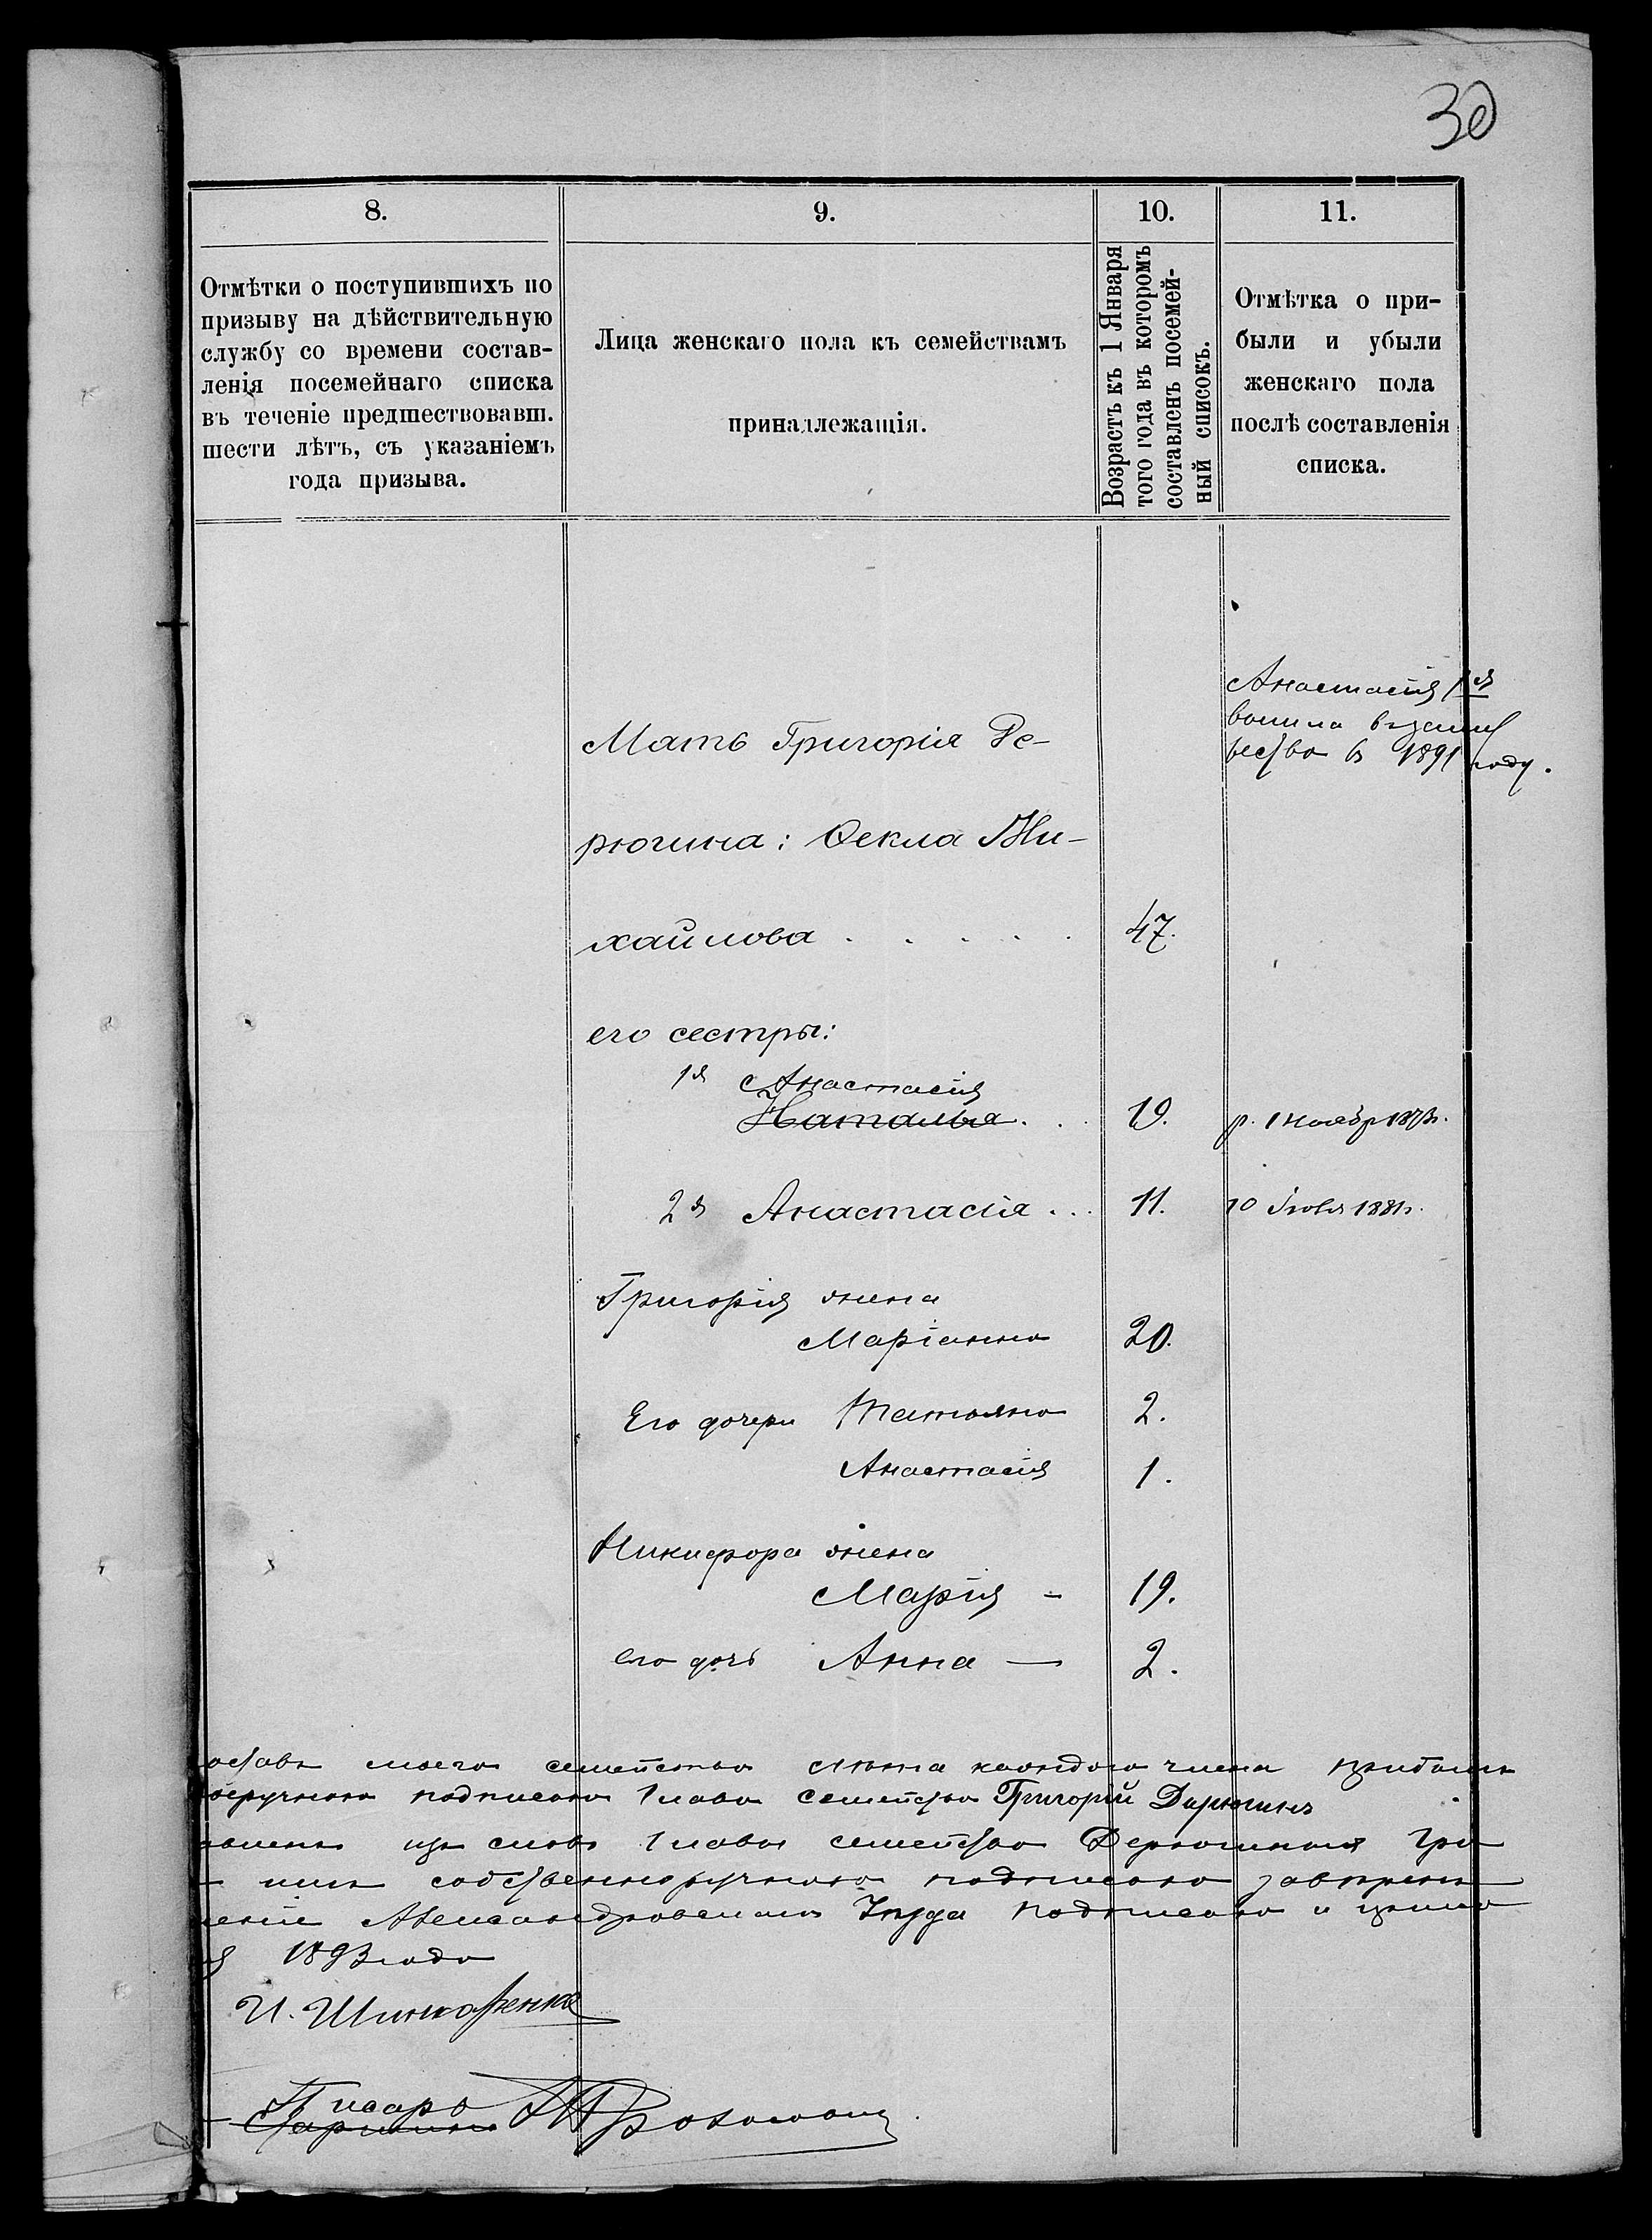 30
8.
9.
10.
11.
Отмѣтки о поступившихъ по
призыву на дѣйствительную
службу со времени состав-
ленія посемейнаго списка
въ теченіе предшествовавш.
шести лѣтъ, съ указаніемъ
года призыва.
Лица женскаго пола къ семействамъ
принадлежащія.
Возрастъ къ 1 Января
того года въ которомъ
составленъ посемей-
ный списокъ.
Отмѣтка о при-
были и убыли
женскаго пола
послѣ составленія
списка.
Анастасія 1я
вышла въ замуж
ество въ 1891 году.
Мать Григорія Де-
рюгина: Ѳекла Ми-
хайлова . . . . . 47.
его сестры:
1я Анастасія
Наталья . . . 19. р. 1 ноябр 1873г.
2я Анастасія . . . 11. 10 1881г.
Григорія жена
Маріанна 20.
Его дочери Татьяна 2.
Анастасія 1.
Никифора жена
Марія - 19.
его дочь Анна — 2.
моего семейства лѣта каждаго члена
подписью Глава семейства Григорій Дирюгинъ
словъ Главы семейства Дерюгинымъ Гри
собственноручною подписью
Александровскаго подписью и
я 1893 года
И. Шинкаренко
Писарь
Старшина